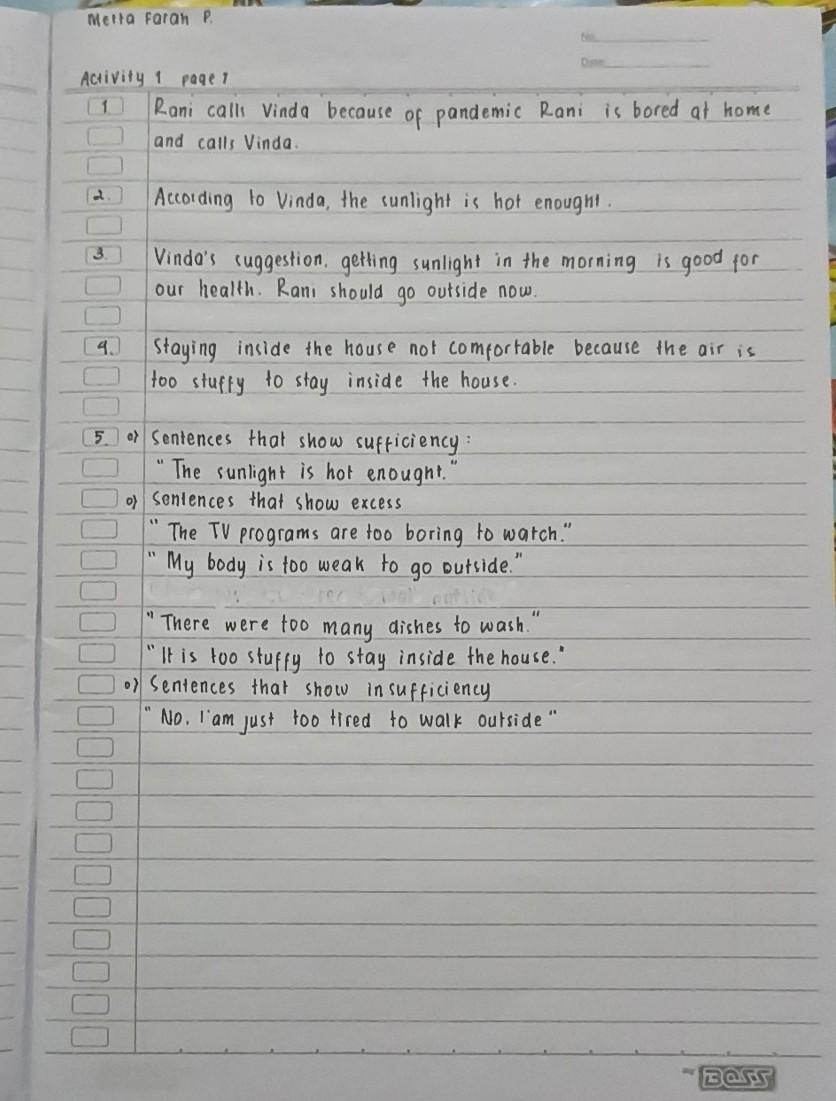 Metta Farah P.
No.
Date:
Activity 1 page 1
1. Rani calls Vinda because of pandemic Rani is bored at home
and calls Vinda.
2. According to Vinda, the sunlight is hot enought.
3. Vinda's suggestion, getting sunlight in the morning is good for
our health. Rani should go outside now.
4. Staying inside the house not comfortable because the air is
too stuffy to stay inside the house.
5. o) Sentences that show sufficiency :
"The sunlight is hot enought."
o) Sentences that show excess
"The TV programs are too boring to watch."
"My body is too weak to go outside."
"There were too many dishes to wash."
"It is too stuffy to stay inside the house."
o) Sentences that show insufficiency
"No, I'am just too tired to walk outside"
BOSS